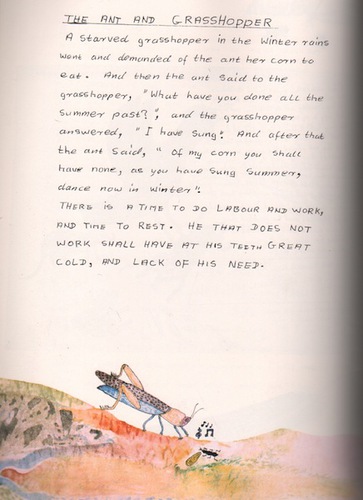 THE ANT AND GRASSHOPPER
A starved grasshopper in the winter rains
went and demanded of the ant her corn to
eat. And then the ant said to the
grasshopper, "What have you done all the
summer past?", and the grasshopper
answered, "I have sung". And after that
the ant said, "Of my corn you shall
have none, as you have sung summer,
dance now in winter".
THERE IS A TIME TO DO LABOUR AND WORK,
AND TIME TO REST. HE THAT DOES NOT
WORK SHALL HAVE AT HIS TEETH GREAT
COLD, AND LACK OF HIS NEED.